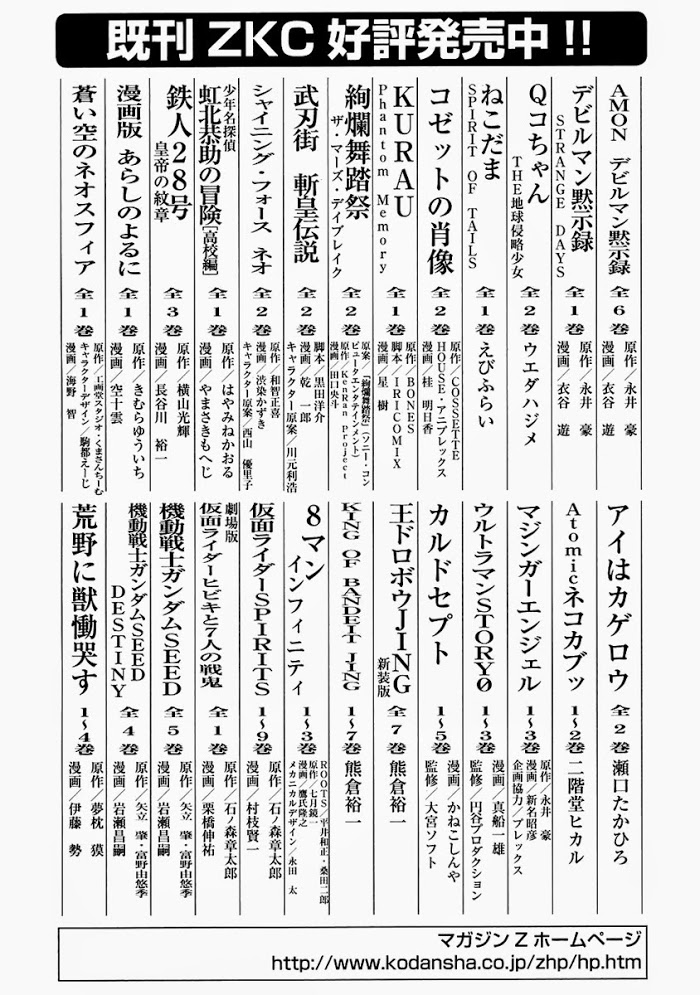 既刊 ZKC 好評発売中!!
AMON デビルマン黙示録 全6巻 原作／永井 豪 漫画／衣谷 遊
デビルマン黙示録 STRANGE DAYS 全1巻 原作／永井 豪 漫画／衣谷 遊
Qコちゃん THE地球侵略少女 全2巻 ウエダハジメ
ねこだま SPIRIT OF TAILS 全1巻 えびふらい
コゼットの肖像 全2巻 原作／COSSETTE HOUSE・アニプレックス 漫画／桂 明日香
KURAU Phantom Memory 全1巻 原作／BONES 脚本／IRICOMIX 漫画／星 樹
絢爛舞踏祭 ザ・マーズ・デイブレイク 全2巻 原案／「絢爛舞踏祭」（ソニー・コンピュータエンタテインメント） 原作／KenRan Project 漫画／田口央斗
武刃街 斬皇伝説 全2巻 脚本／黒田洋介 漫画／乾 一郎 キャラクター原案／川元利浩
シャイニング・フォース ネオ 全2巻 原作／和智正喜 漫画／渋染かずき キャラクター原案／西山 優里子
少年名探偵 虹北恭助の冒険［高校編］ 全1巻 原作／はやみねかおる 漫画／やまさきもへじ
鉄人28号 皇帝の紋章 全3巻 原作／横山光輝 漫画／長谷川 裕一
漫画版 あらしのよるに 全1巻 原作／きむらゆういち 漫画／空十雲
蒼い空のネオスフィア 全1巻 原作／工画堂スタジオ・くまさんちーむ キャラクターデザイン／駒都えーじ 漫画／海野 智
アイはカゲロウ 全2巻 瀬口たかひろ
Atomicネコカブッ 1〜2巻 二階堂ヒカル
マジンガーエンジェル 1〜3巻 原作／永井 豪 漫画／新名昭彦 企画協力／ブレックス
ウルトラマンSTORY0 1〜3巻 漫画／真船一雄 監修／円谷プロダクション
カルドセプト 1〜5巻 漫画／かねこしんや 監修／大宮ソフト
王ドロボウJING 新装版 全7巻 熊倉裕一
KING OF BANDEIT JING 1〜7巻 熊倉裕一
8マン インフィニティ 1〜3巻 ROOTS／平井和正・桑田二郎 原作／七月鏡一 漫画／鷹氏隆之 メカニカルデザイン／永田 太
仮面ライダーSPIRITS 1〜9巻 原作／石ノ森章太郎 漫画／村枝賢一
劇場版 仮面ライダーヒビキと7人の戦鬼 全1巻 原作／石ノ森章太郎 漫画／栗橋伸祐
機動戦士ガンダムSEED 全5巻 原作／矢立 肇・富野由悠季 漫画／岩瀬昌嗣
機動戦士ガンダムSEED DESTINY 全4巻 原作／矢立 肇・富野由悠季 漫画／岩瀬昌嗣
荒野に獣慟哭す 1〜4巻 原作／夢枕 獏 漫画／伊藤 勢
マガジンZホームページ
http://www.kodansha.co.jp/zhp/hp.htm